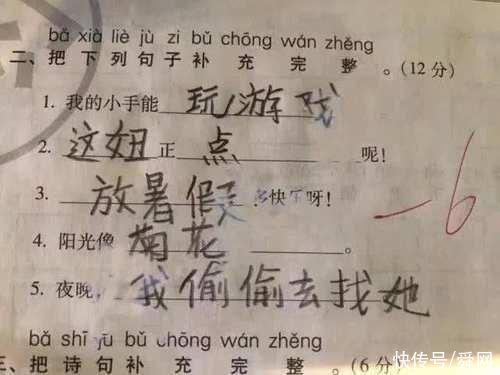 bǎ xià liè jù zi bǔ chōng wán zhěng
二、把下列句子补充完整。(12分)
1. 我的小手能 玩游戏
2. 这妞正 点 呢!
3. 放暑假 多快乐呀!
4. 阳光像 菊花 。
5. 夜晚, 我偷偷去找她
-6
bǎ shī jù bǔ chōng wán zhěng
三、把诗句补充完整。(6分)
快传号/舜网